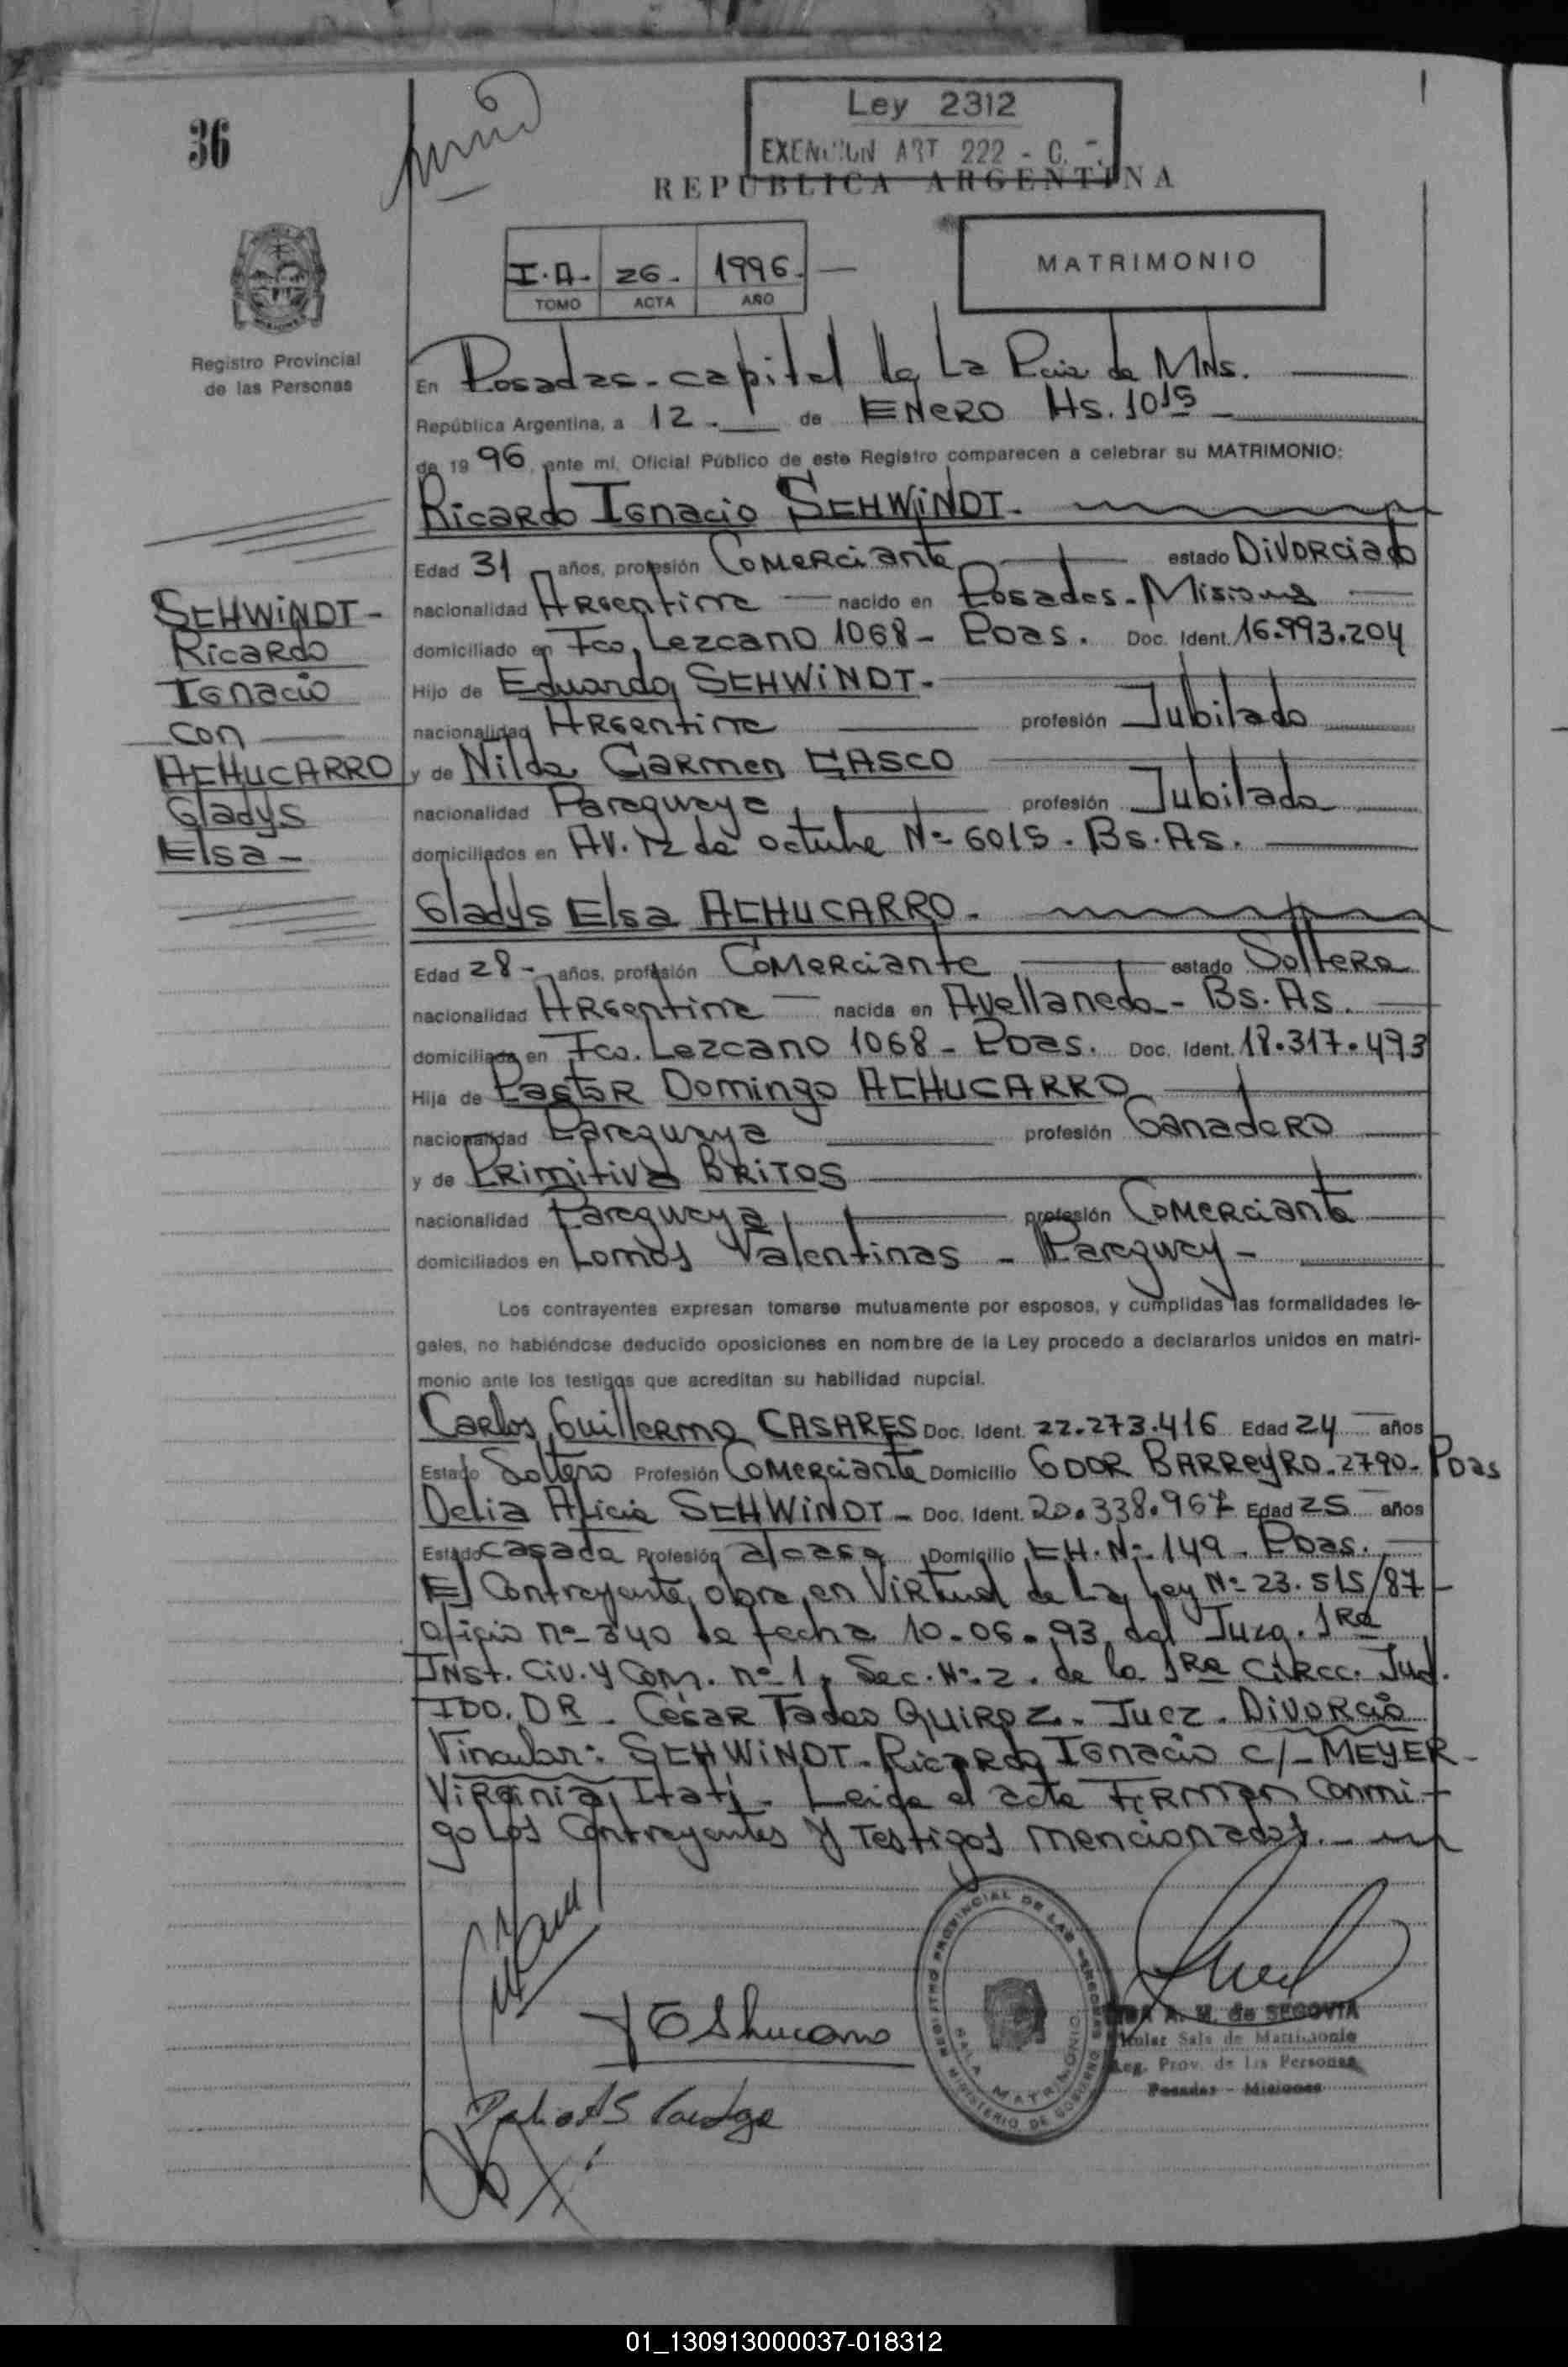 36
Ley 2312
EXENCION ART 222 - C.
REPUBLICA ARGENTINA
I.A. 26. 1996.
TOMO ACTA AÑO
MATRIMONIO
Registro Provincial
de las Personas
En Posadas - capital de La Pcia de MNs.
República Argentina, a 12. de ENERO Hs. 10 15
de 19 96, ante mí, Oficial Público de este Registro comparecen a celebrar su MATRIMONIO:
Ricardo Ignacio SCHWINDT.
Edad 31 años, profesión Comerciante estado Divorciado
nacionalidad Argentina nacido en Posadas - Misiones
domiciliado en Fco. Lezcano 1068 - Pdas. Doc. Ident. 16.993.204
Hijo de Eduardo SCHWINDT.
nacionalidad Argentina profesión Jubilado
y de Nilda Carmen GASCO
nacionalidad Paraguaya profesión Jubilada
domiciliados en AV. 12 de octubre Nº 6015 - Bs. As.
SCHWINDT -
Ricardo
Ignacio
con
ACHUCARRO
Gladys
Elsa -
Gladys Elsa ACHUCARRO.
Edad 28 - años, profesión Comerciante estado Soltera
nacionalidad Argentina nacida en Avellaneda - Bs. As.
domiciliada en Fco. Lezcano 1068 - Pdas. Doc. Ident. 18.317.493
Hija de Pastor Domingo ACHUCARRO
nacionalidad Paraguaya profesión Ganadero
y de Primitiva BRITOS
nacionalidad Paraguaya profesión Comerciante
domiciliados en Lomas Valentinas - Paraguay -
Los contrayentes expresan tomarse mutuamente por esposos, y cumplidas las formalidades le-
gales, no habiéndose deducido oposiciones en nombre de la Ley procedo a declararlos unidos en matri-
monio ante los testigos que acreditan su habilidad nupcial.
Carlos Guillermo CASARES Doc. Ident. 22.273.416 Edad 24 años
Estado Soltero Profesión Comerciante Domicilio GDOR BARREYRO - 2790 - Pdas
Delia Alicia SCHWINDT - Doc. Ident. 20.338.967 Edad 25 años
Estado casada Profesión Domicilio CH. Nº 149 - Pdas.
El Contrayente obra en Virtud de La Ley Nº 23.515/87
oficio nº 340 de fecha 10-06-93 del Juzg. 1Ra
Inst. Civ. y Com. nº 1, Sec. Nº 2. de la 1Ra Circc. Jud.
IDO. DR. César Tadeo QUIROZ - Juez - Divorcio
Vincular: SCHWINDT - Ricardo Ignacio c/ - MEYER -
Virginia Itatí - Leída el acta Firman Conmi-
go Los Contrayentes y Testigos mencionados. -
REGISTRO PROVINCIAL DE LAS PERSONAS
SALA MATRIMONIO
MINISTERIO DE GOBIERNO
A. M. de SEGOVIA
Titular Sala de Matrimonio
Reg. Prov. de las Personas
Posadas - Misiones
01_130913000037-018312